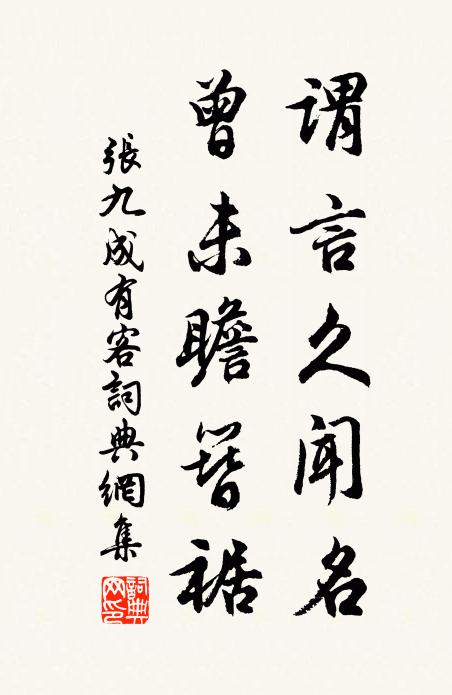 謂言久聞名
曾未瞻簪裾
張九成有客詞典網集
詞典網印